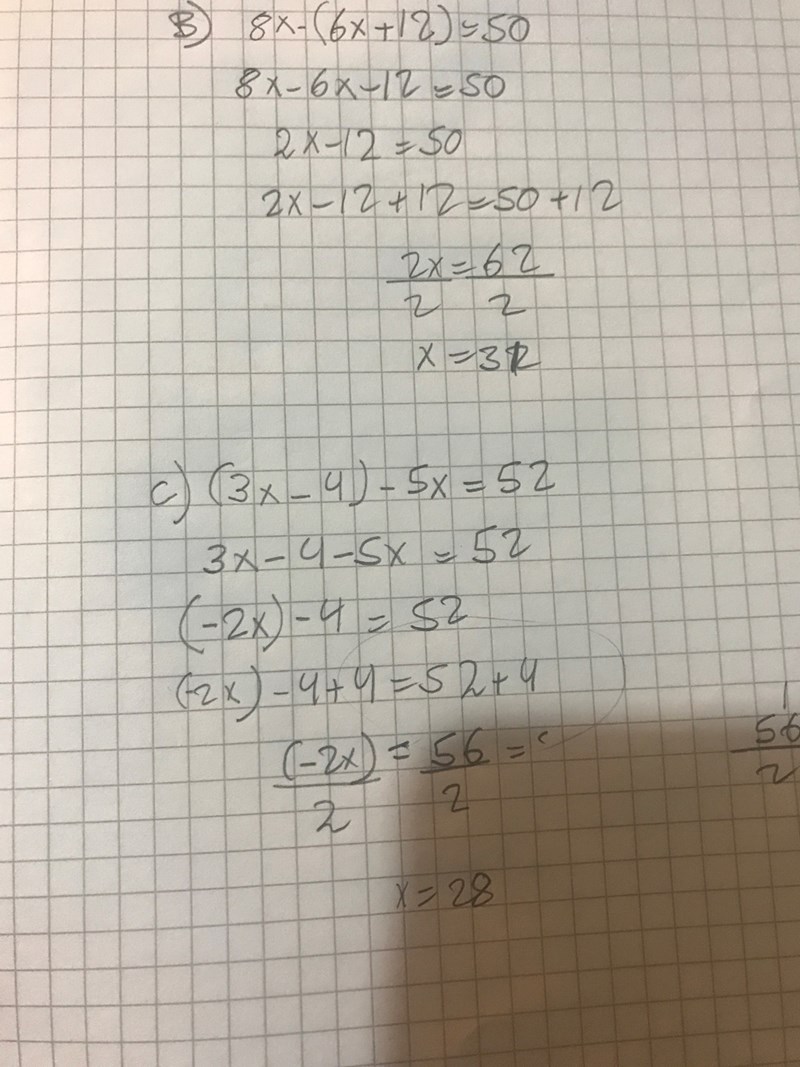 B) 8x-(6x+12)=50
8x-6x-12=50
2x-12=50
2x-12+12=50+12
2x=62
2 2
x=31
c) (3x-4)-5x=52
3x-4-5x=52
(-2x)-4=52
(-2x)-4+4=52+4
(-2x) = 56 =
2 2
56
2
x=28